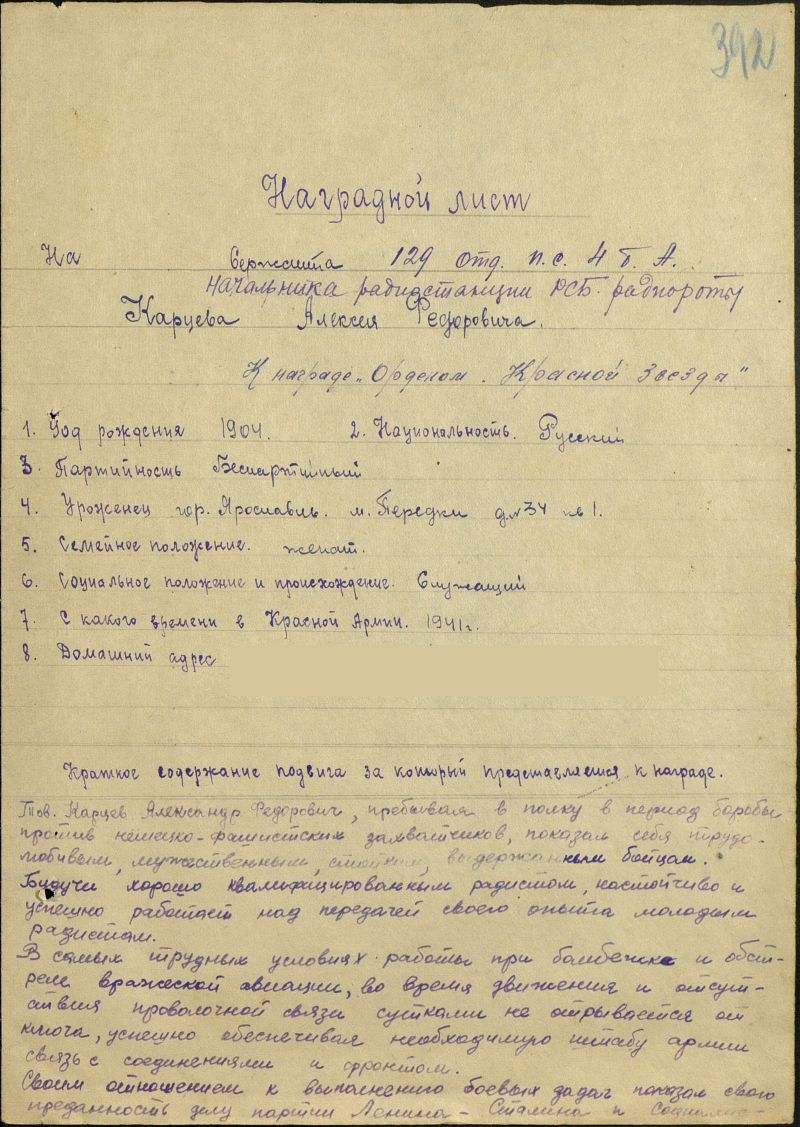 392
Наградной лист
На Сержанта 129 отд. п.с. 4 т. А.
начальника радиостанции РСБ радиороты
Карцева Алексея Федоровича.
К награде „Орделом. Красной Звезды"
1. Год рождения 1904. 2. Национальность. Русский
3. Партийность Беспартийный
4. Уроженец гор. Ярославль. м. Передки д.№34 кв 1.
5. Семейное положение. женат.
6. Социальное положение и происхождение. Служащий
7. С какого времени в Красной Армии. 1941г.
8. Домашний адрес
Краткое содержание подвига за который представляется к награде.
Тов. Карцев Александр Федорович, пребывая в полку в период борьбы
против немецко-фашистских захватчиков, показал себя трудо-
любивым, мужественным, стойким, выдержанным бойцом.
Будучи хорошо квалифицированным радистом, настойчиво и
успешно работает над передачей своего опыта молодым
радистам.
В самых трудных условиях работы при бомбежке и обст-
реле вражеской авиации, во время движения и отсут-
ствия проволочной связи сутками не отрывается от
ключа, успешно обеспечивая необходимую штабу армии
связь с соединениями и фронтом.
Своим отношением к выполнению боевых задач показал свою
преданность делу партии Ленина - Сталина и Социалис-